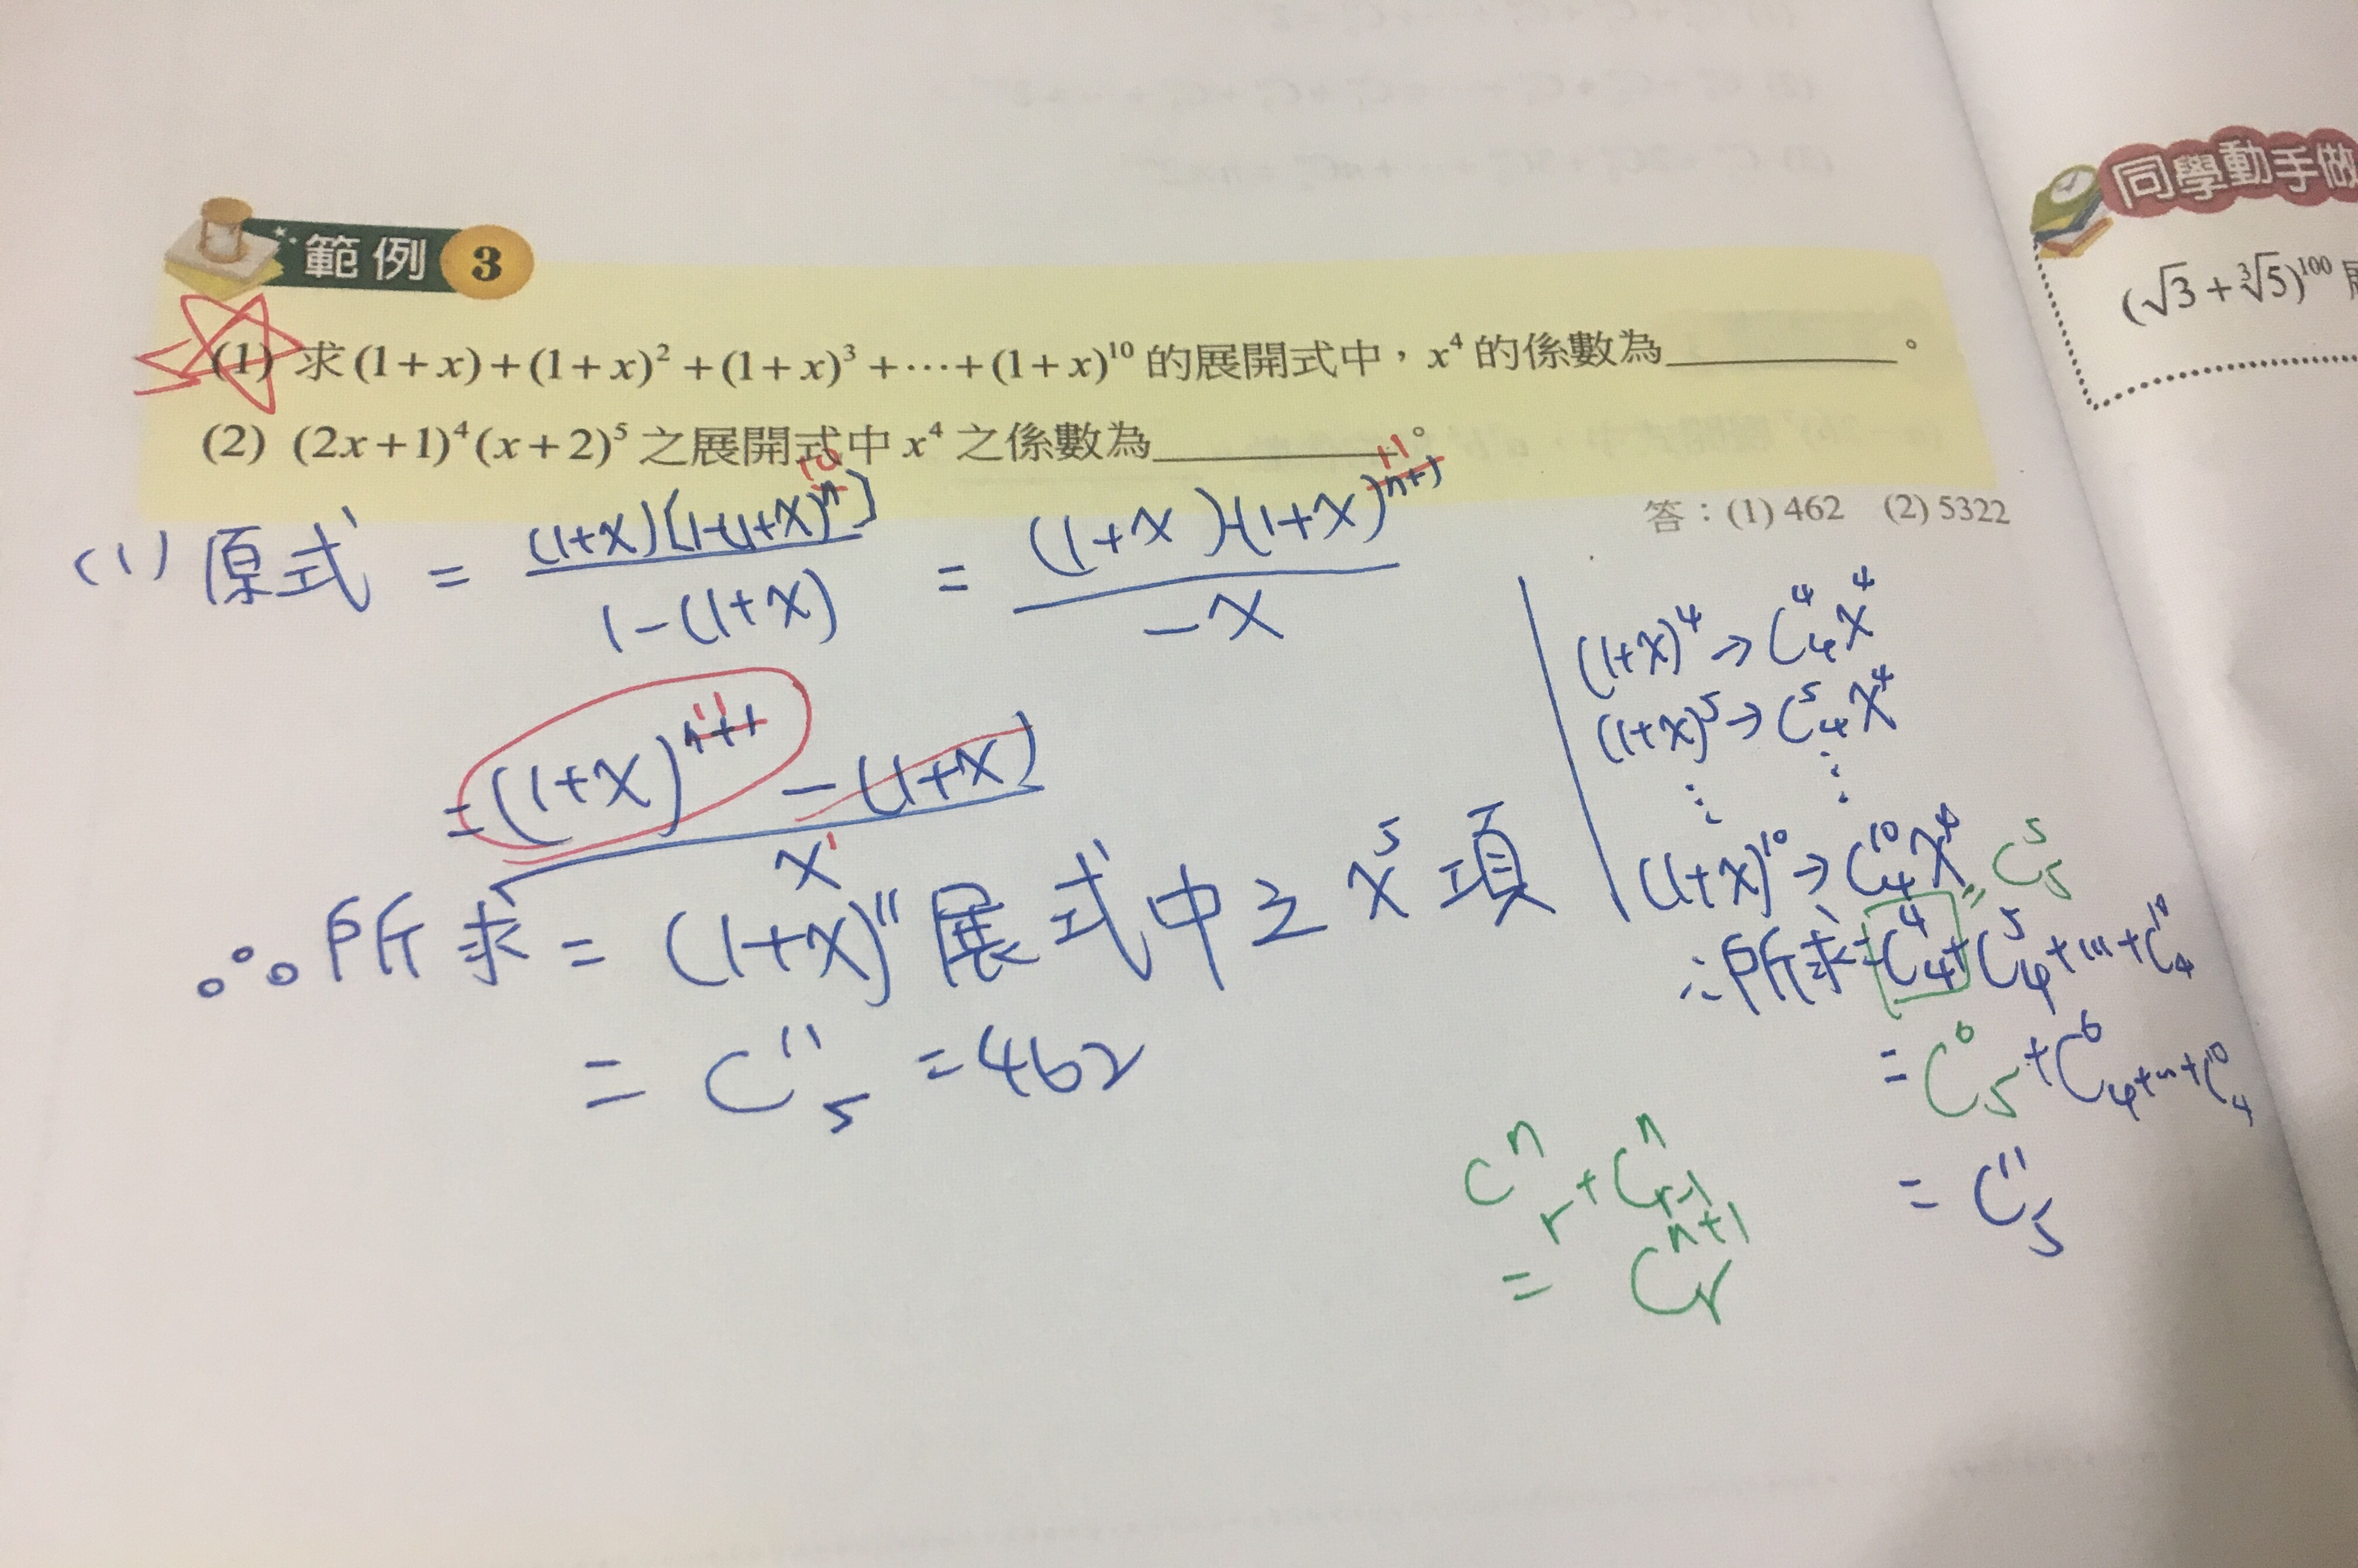 範例 3
(1) 求(1+x)+(1+x)²+(1+x)³+⋯+(1+x)¹⁰的展開式中，x⁴的係數為__________。
(2) (2x+1)⁴(x+2)⁵之展開式中x⁴之係數為__________。
答：(1) 462 (2) 5322
(1) 原式 = (1+x)[1-(1+x)ⁿ] / 1-(1+x) = (1+x)-(1+x)ⁿ⁺¹ / -x
10
11
= (1+x)ⁿ⁺¹ - (1+x) / x
11
∴所求 = (1+x)¹¹展式中之x⁵項
= C¹¹₅ = 462
(1+x)⁴→C⁴₄x⁴
(1+x)⁵→C⁵₄x⁴
⋮ ⋮
(1+x)¹⁰→C¹⁰₄x⁴
C⁵₅
∴所求=C⁴₄+C⁵₄+⋯+C¹⁰₄
=C⁶₅+C⁶₄+⋯+C¹⁰₄
=C¹¹₅
Cⁿᵣ+Cⁿᵣ₋₁
=Cⁿ⁺¹ᵣ
同學動手做
(√3+∛5)¹⁰⁰